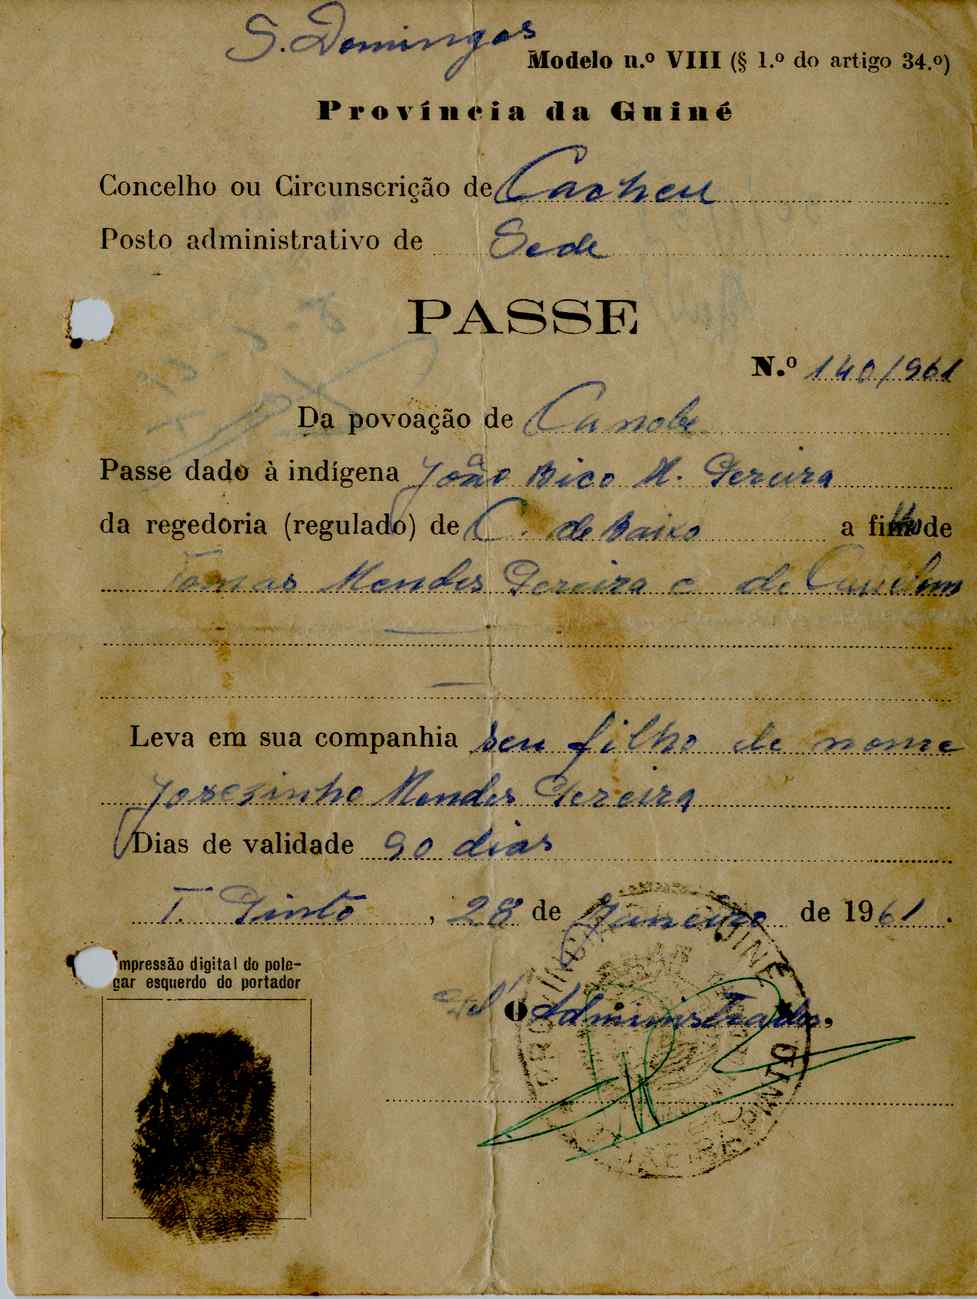 S. Domingos
Modelo n.º VIII (§ 1.º do artigo 34.º)
Província da Guiné
Concelho ou Circunscrição de Cacheu
Posto administrativo de Sede
PASSE
N.º 140/961
Da povoação de Canobe
Passe dado à indígena João Bico M. Pereira
da regedoria (regulado) de C. de Baixo a filho de
Tomas Mendes Pereira e de
Leva em sua companhia seu filho de nome
Josezinho Mendes Pereira
Dias de validade 90 dias
T. Pinto, 28 de Janeiro de 1961.
Impressão digital do pole-
gar esquerdo do portador
O Administrador,
PROVÍNCIA GUINÉ
PINTO